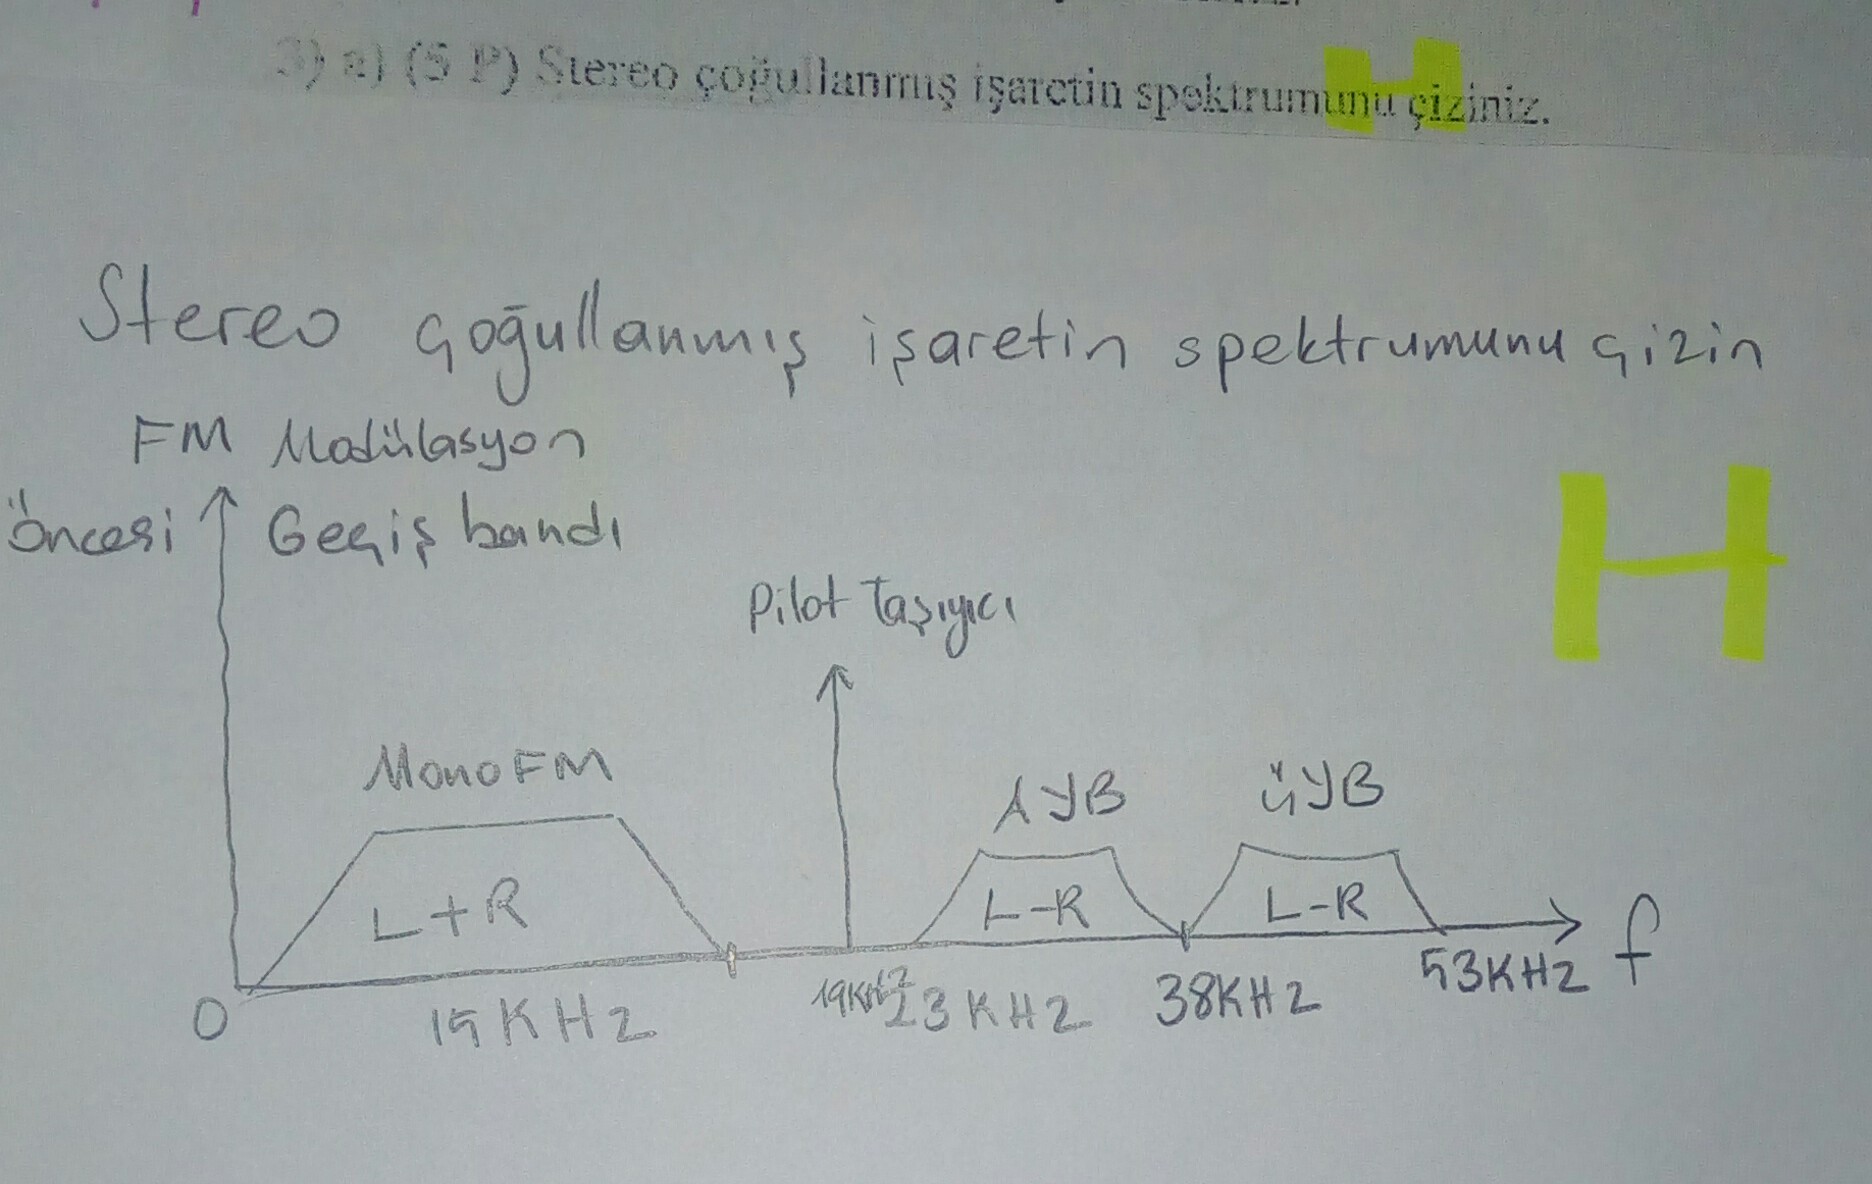 3) a) (5 P) Stereo çoğullanmış işaretin spektrumunu çiziniz.
H
Stereo çoğullanmış işaretin spektrumunu çizin
FM Modülasyon
Öncesi Geçiş bandı
H
Pilot Taşıyıcı
Mono FM
AYB
ÜYB
L+R
L-R
L-R
f
0
15 KHz
19KHz
23 KHz
38KHz
53KHz